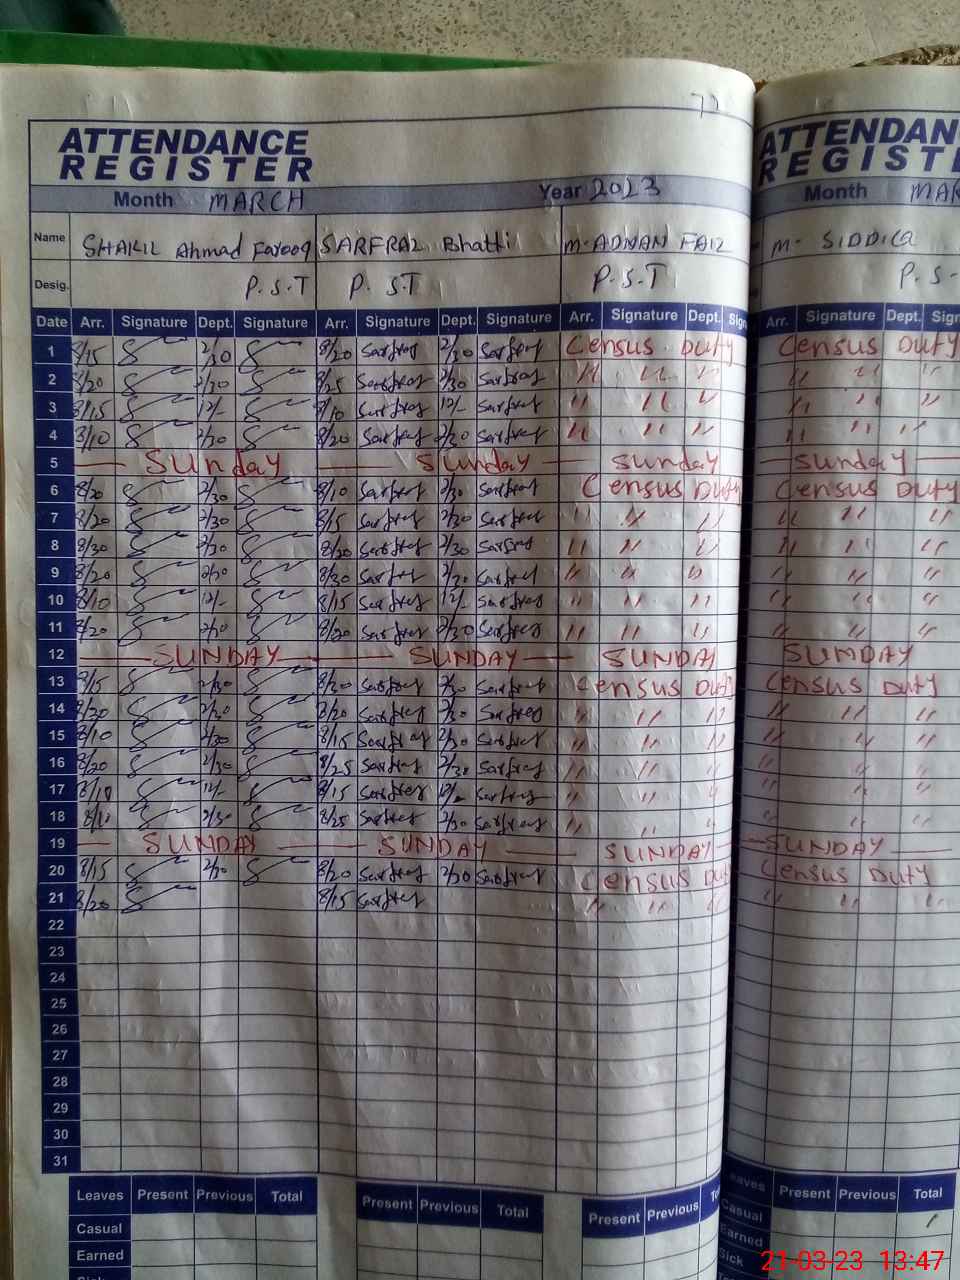 72
ATTENDANCE
REGISTER
Month MARCH Year 2023
Name SHAKIL Ahmad Farooq SARFRAZ Bhatti M-ADNAN FAIZ
Desig. P.S.T P.S.T P.S.T
Date Arr. Signature Dept. Signature Arr. Signature Dept. Signature Arr. Signature Dept. Sign
1 8/15 2/30 8/20 Sarfraz 2/30 Sarfraz Census Duty
2 8/20 2/30 8/25 Sarfraz 2/30 Sarfraz " " "
3 8/15 12/- 8/10 Sarfraz 12/- Sarfraz " " "
4 8/10 2/30 8/20 Sarfraz 2/30 Sarfraz " " "
5 Sunday Sunday Sunday
6 8/20 2/30 8/10 Sarfraz 2/30 Sarfraz Census Duty
7 8/20 2/30 8/15 Sarfraz 2/30 Sarfraz " " "
8 8/30 2/30 8/20 Sarfraz 2/30 Sarfraz " " "
9 8/20 2/30 8/30 Sarfraz 2/30 Sarfraz " " "
10 8/10 12/- 8/15 Sarfraz 12/- Sarfraz " " "
11 8/20 2/30 8/20 Sarfraz 2/30 Sarfraz " " "
12 SUNDAY SUNDAY SUNDAY
13 8/15 2/30 8/30 Sarfraz 2/30 Sarfraz Census Duty
14 8/30 2/30 8/20 Sarfraz 2/30 Sarfraz " " "
15 8/10 2/30 8/15 Sarfraz 2/30 Sarfraz " " "
16 8/20 2/30 8/25 Sarfraz 2/30 Sarfraz " " "
17 8/10 12/- 8/15 Sarfraz 12/- Sarfraz " " "
18 8/10 2/30 8/25 Sarfraz 2/30 Sarfraz " " "
19 SUNDAY SUNDAY SUNDAY
20 8/15 2/30 8/20 Sarfraz 2/30 Sarfraz Census Dut
21 8/20 8/15 Sarfraz " " "
22
23
24
25
26
27
28
29
30
31
Leaves Present Previous Total Present Previous Total Present Previous
Casual
Earned
ATTENDAN
REGISTE
Month MAR
M- SIDDIQ
P.S-
Arr. Signature Dept. Sig
Census Duty
" " "
" " "
" " "
Sunday
Census Duty
" " "
" " "
" " "
" " "
" " "
SUNDAY
Census Duty
" " "
" " "
" " "
" " "
" " "
SUNDAY
Census Duty
" " "
eaves Present Previous Total
Casual
Earned
Sick
21-03-23 13:47